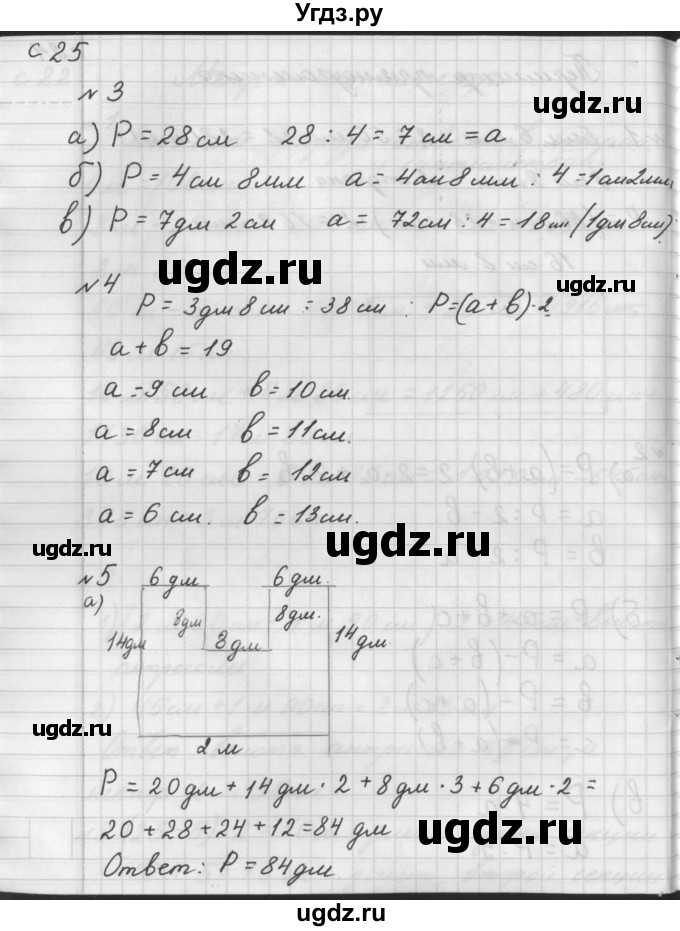 Угдз.ру
с 25
№ 3
а) P = 28 см 28 : 4 = 7 см = a
б) P = 4 см 8 мм a = 4 см 8 мм : 4 = 1 см 2 мм
в) P = 7 дм 2 см a = 72 см : 4 = 18 см (1 дм 8 см)
ugdz.ru
№ 4
P = 3 дм 8 см = 38 см : P = (a + b) · 2
a + b = 19
a = 9 см b = 10 см.
a = 8 см b = 11 см.
a = 7 см b = 12 см
a = 6 см. b = 13 см.
ugdz.ru
ugdz.ru
№ 5 6 дм 6 дм.
а)
8 дм 8 дм.
14 дм 8 дм 14 дм
2 м
P = 20 дм + 14 дм · 2 + 8 дм · 3 + 6 дм · 2 =
20 + 28 + 24 + 12 = 84 дм
ugdz.ru
Ответ: P = 84 дм
ugdz.ru